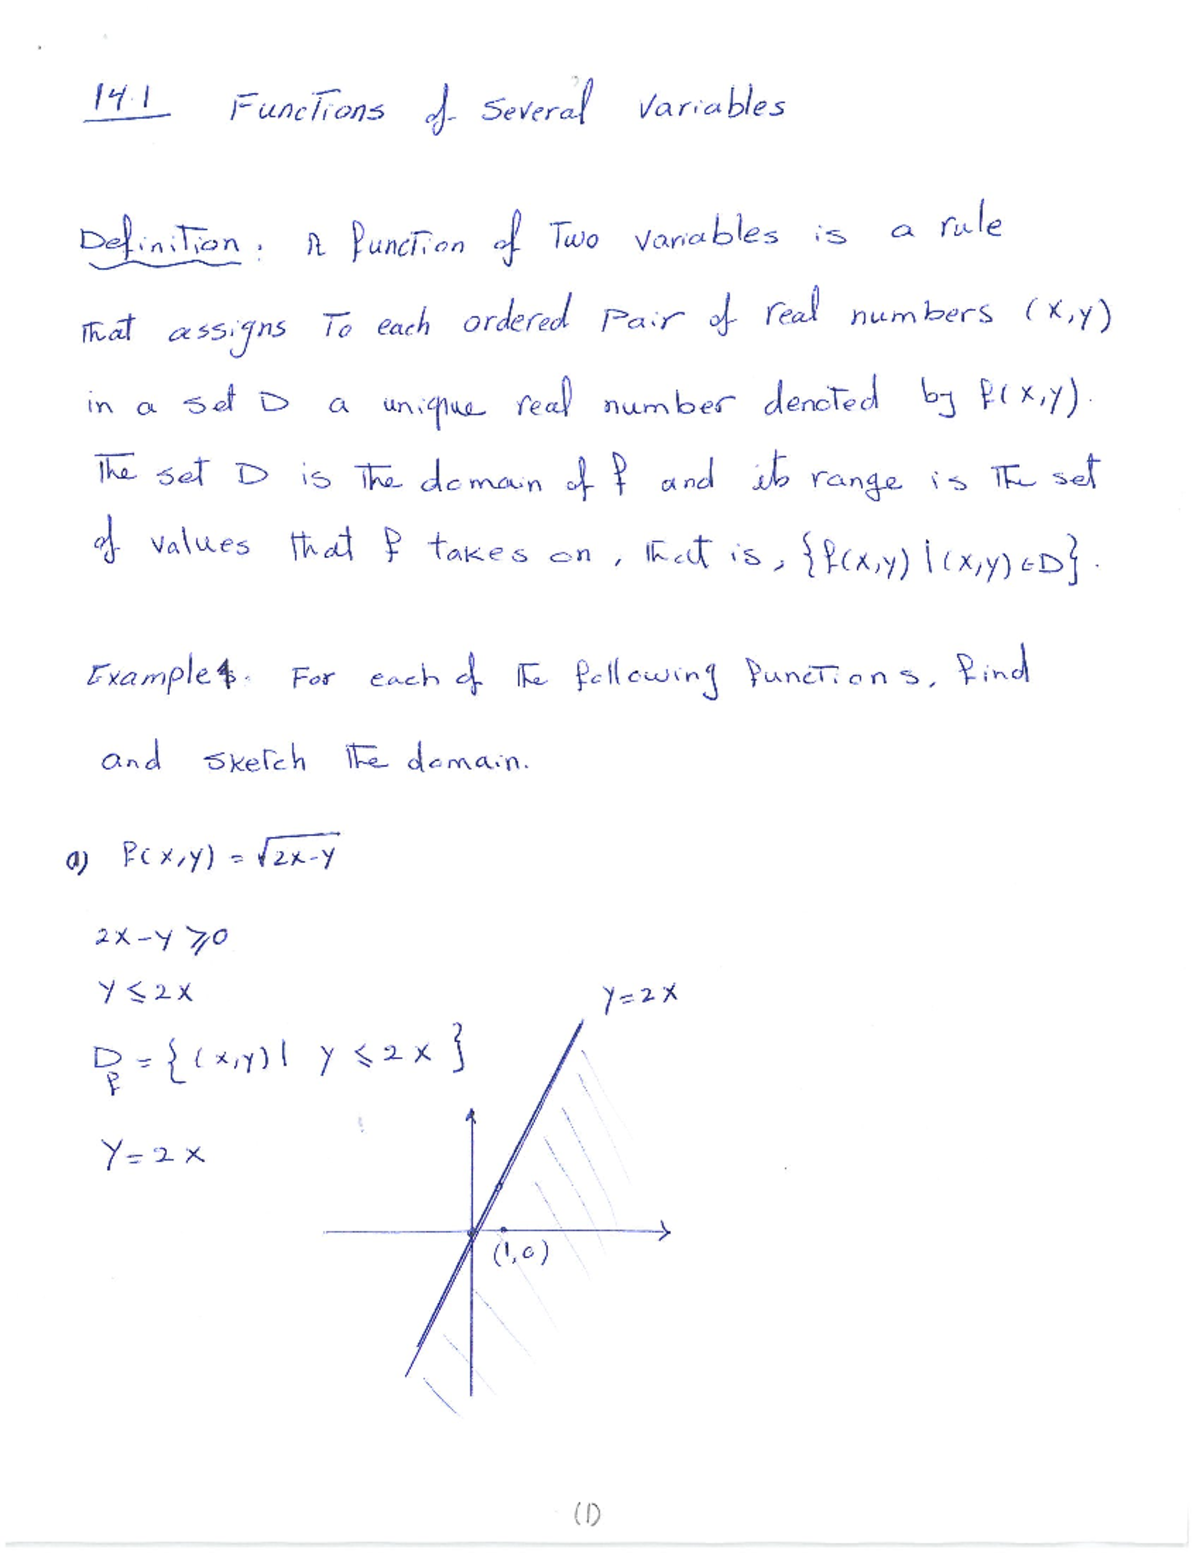 14.1 Functions of Several Variables
Definition: A function of Two variables is a rule
That assigns To each ordered pair of real numbers (x,y)
in a set D a unique real number denoted by f(x,y).
The set D is The domain of f and its range is The set
of values that f takes on, that is, {f(x,y) | (x,y) ∈ D}.
Example 1. For each of The following functions, find
and sketch The domain.
a) f(x,y) = √2x-y
2x-y ⩾ 0
y ⩽ 2x
y=2x
D_f = {(x,y) | y ⩽ 2x}
y=2x
(1,0)
(1)